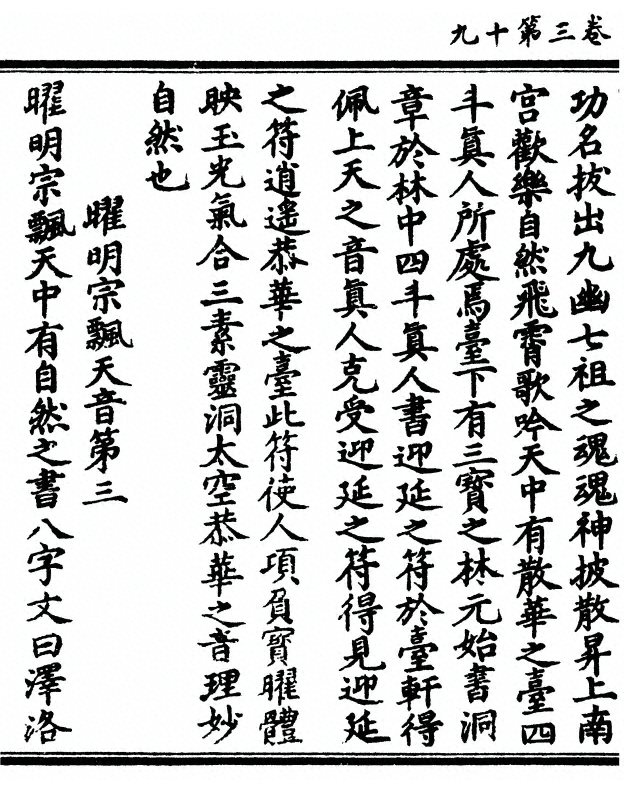 卷三第十九
功名拔出九幽七祖之魂魂神披散昇上南
宮歡樂自然飛霄歌吟天中有散華之臺四
斗眞人所處焉臺下有三寶之林元始書洞
章於林中四斗眞人書迎延之符於臺軒得
佩上天之音眞人克受迎延之符得見迎延
之符逍遙恭華之臺此符使人項負寳曜體
映玉光氣合三素靈洞太空恭華之音理妙
自然也
曜明宗飄天音第三
曜明宗飄天中有自然之書八字文曰澤洛